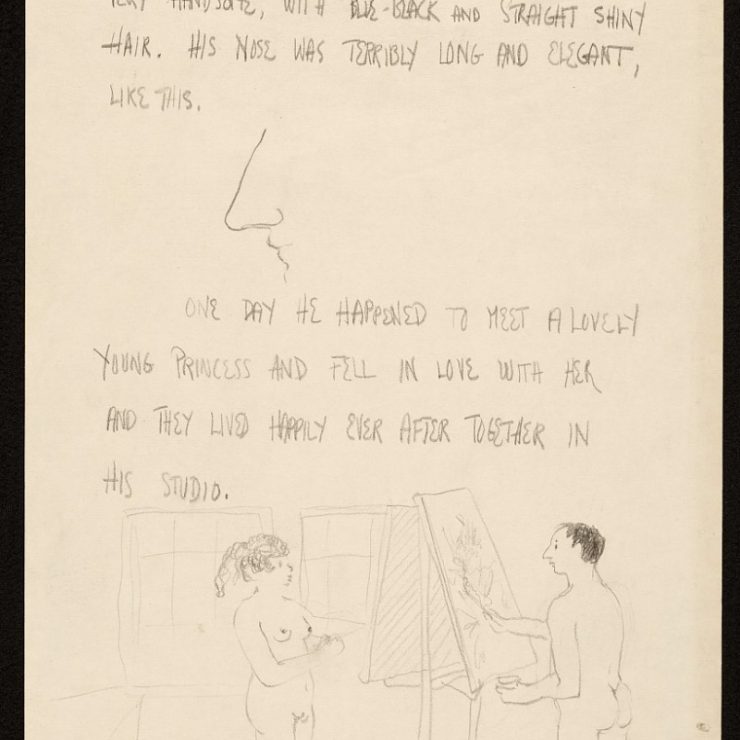 VERY HANDSOME, WITH BLUE-BLACK AND STRAIGHT SHINY
HAIR. HIS NOSE WAS TERRIBLY LONG AND ELEGANT,
LIKE THIS.
ONE DAY HE HAPPENED TO MEET A LOVELY
YOUNG PRINCESS AND FELL IN LOVE WITH HER
AND THEY LIVED HAPPILY EVER AFTER TOGETHER IN
HIS STUDIO.